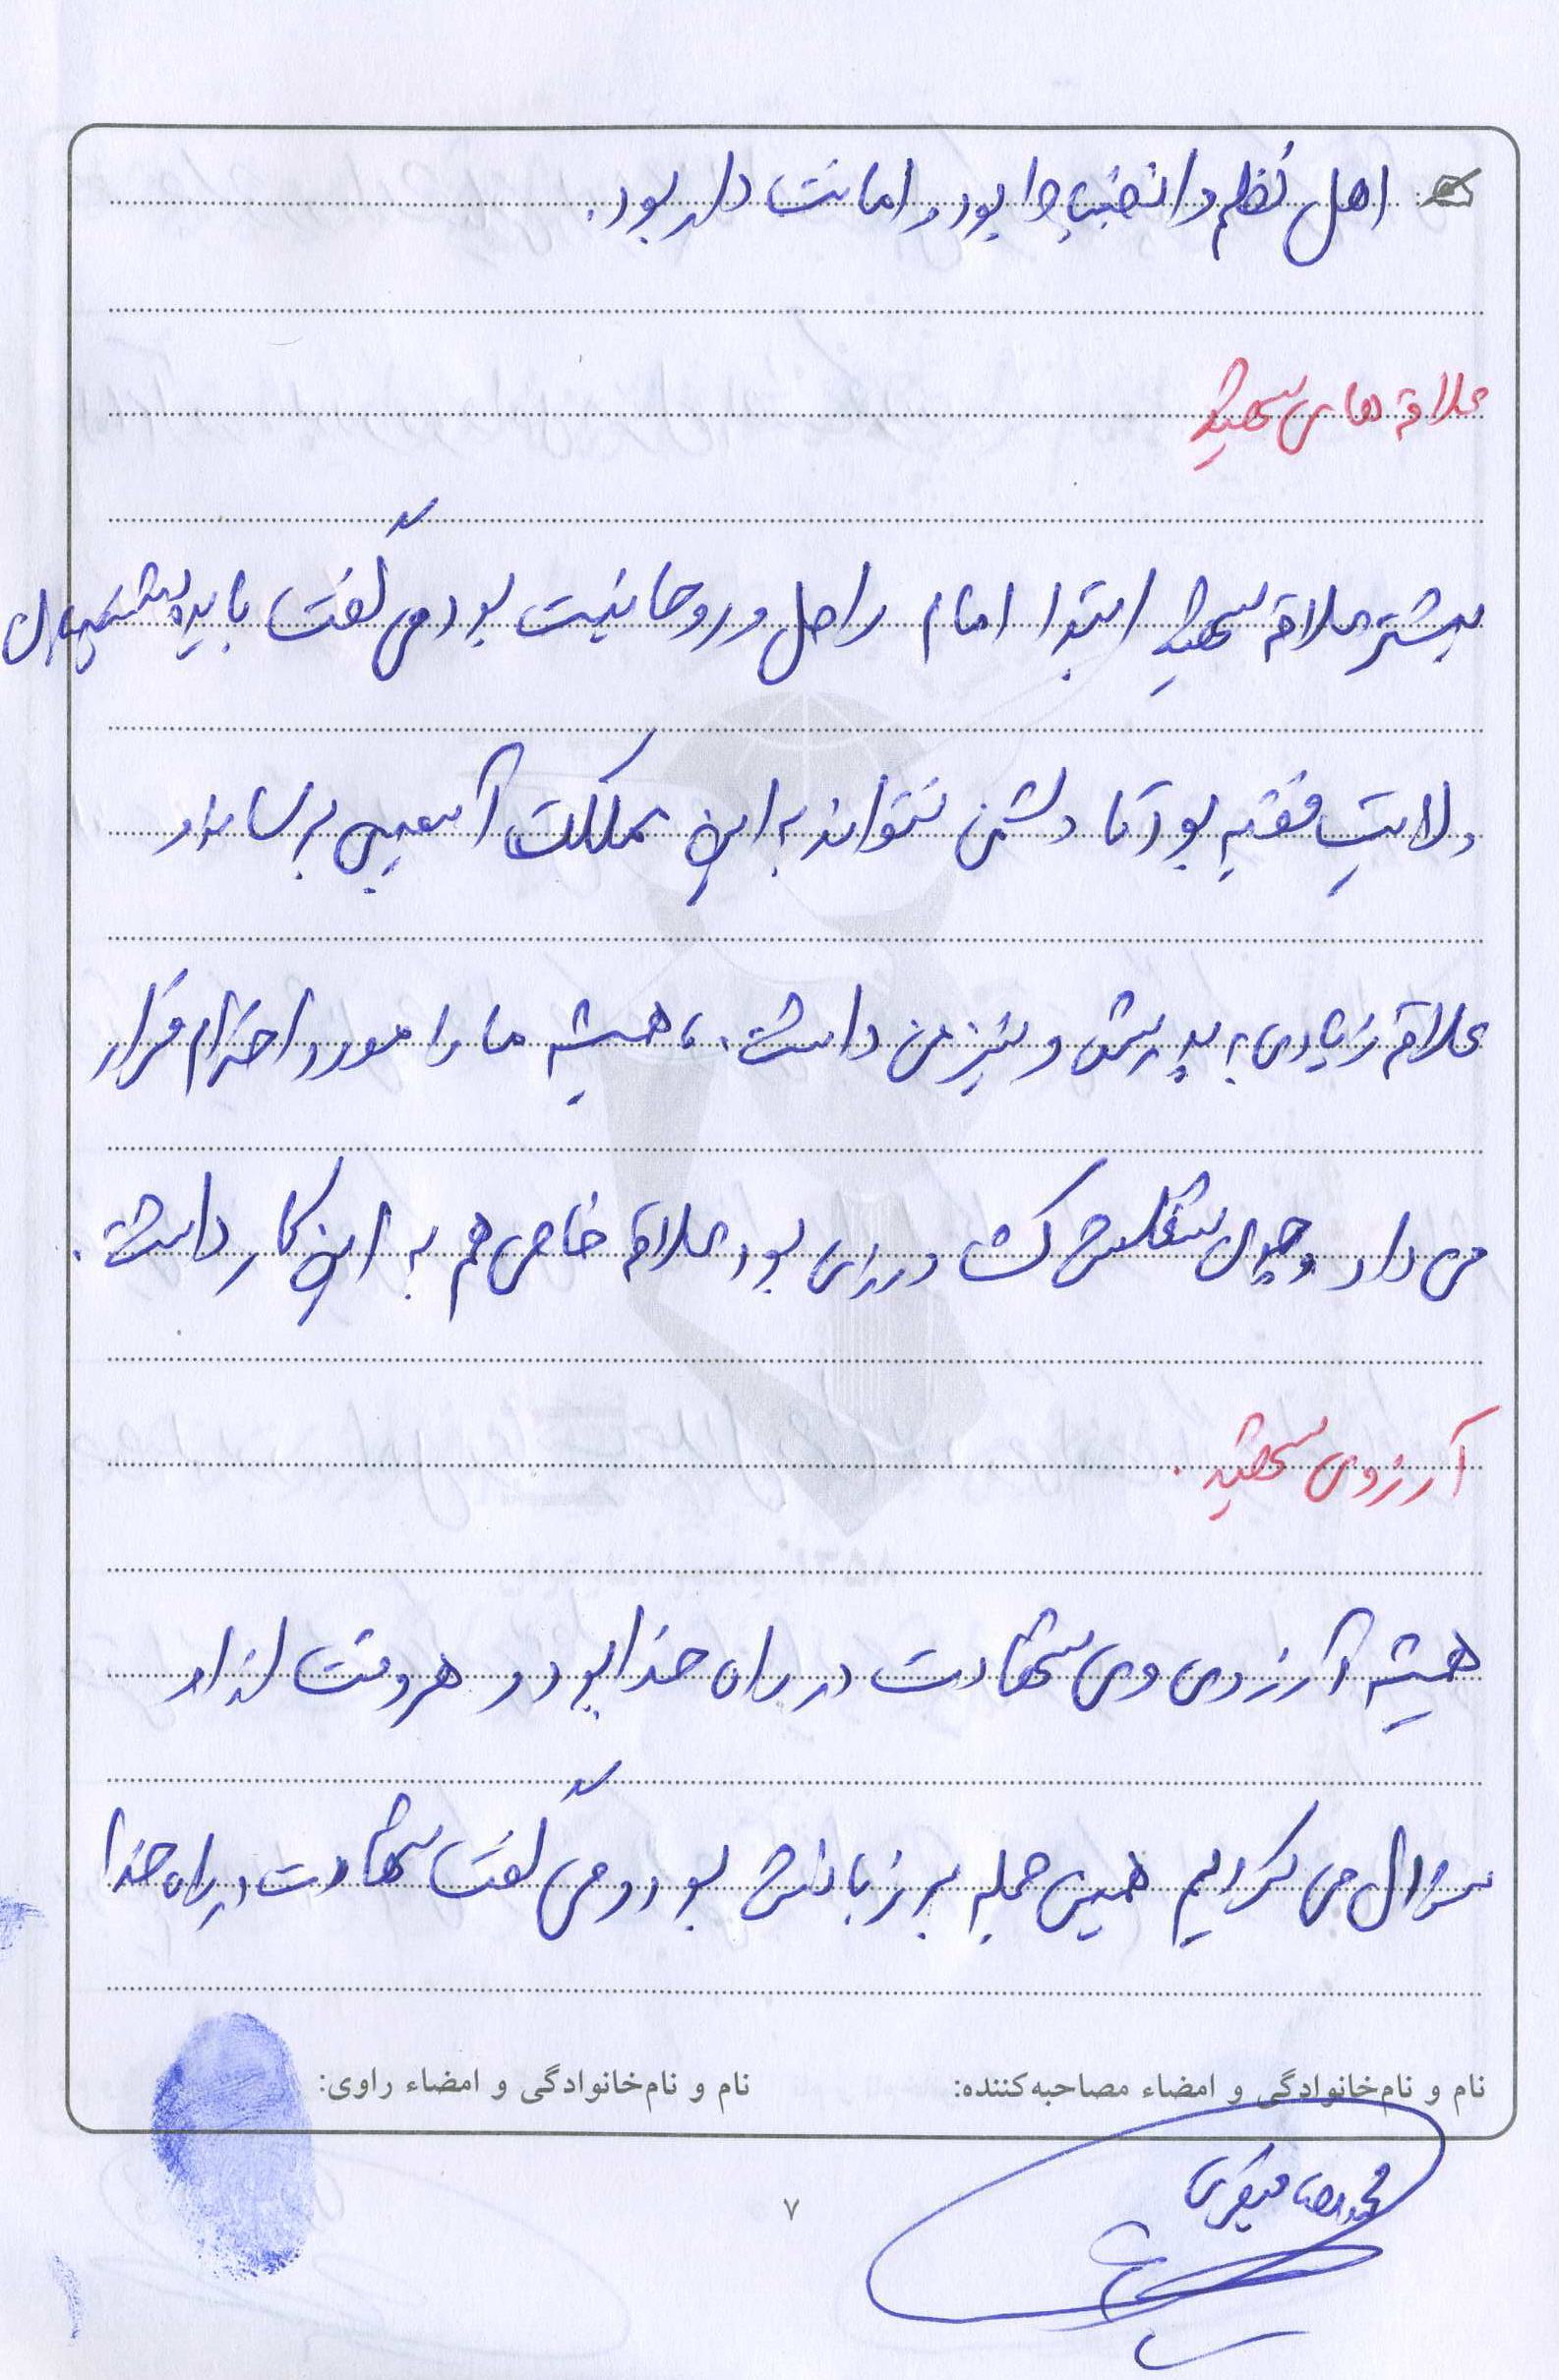 اهل نظم و انضباط بود و امانت دار بود.
علاقه های شهید
بیشتر علاقه شهید ابتدا امام راحل و روحانیت بود می گفت باید پشتیبان
ولایت فقیه بود تا دشمن نتواند به این مملکت آسیبی برساند
علاقه زیادی به پدرش و نیز من داشت، همیشه ما را مورد احترام قرار
می داد و چون شغلش کشاورزی بود علاقه خاصی هم به این کار داشت.
آرزوی شهید.
همیشه آرزوی وی شهادت در راه خدا بود و هر وقت از او
سوال می کردیم همین جمله بر زبانش بود و می گفت شهادت در راه خدا
نام و نام‌خانوادگی و امضاء مصاحبه‌کننده:
نام و نام‌خانوادگی و امضاء راوی:
محمدرضا
۷